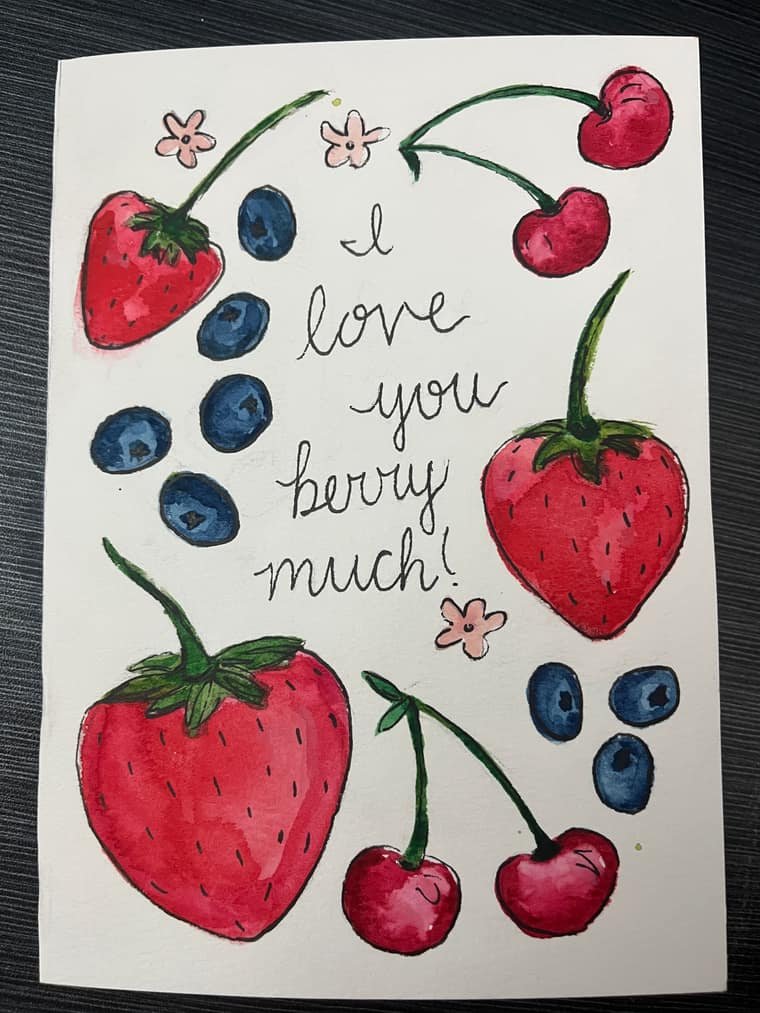 I
love
you
berry
much!